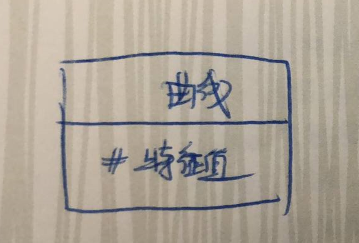 曲线
# 特征值